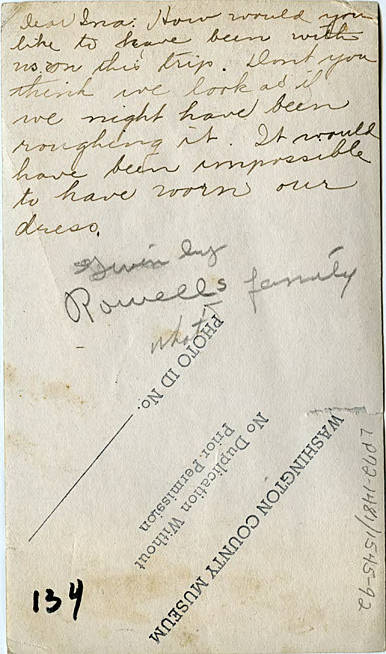 Dear Ina: How would you
like to have been with
us on this trip. Dont you
think we look as if
we might have been
roughing it. It would
have been impossible
to have worn our
dress.
Given by
Rowells family
What?
PHOTO ID No.
No Duplication Without
Prior Permission
WASHINGTON COUNTY MUSEUM
134